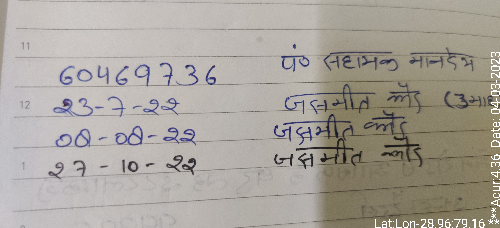 11
60469736 पं० सहायक मानदेय
12
23-7-22 जसमीत कौर
08-08-22 जसमीत कौर
1
27-10-22 जसमीत कौर
Lat:Lon-28.96:79.16 ***Acur:4.36 Date: 04-03-2023